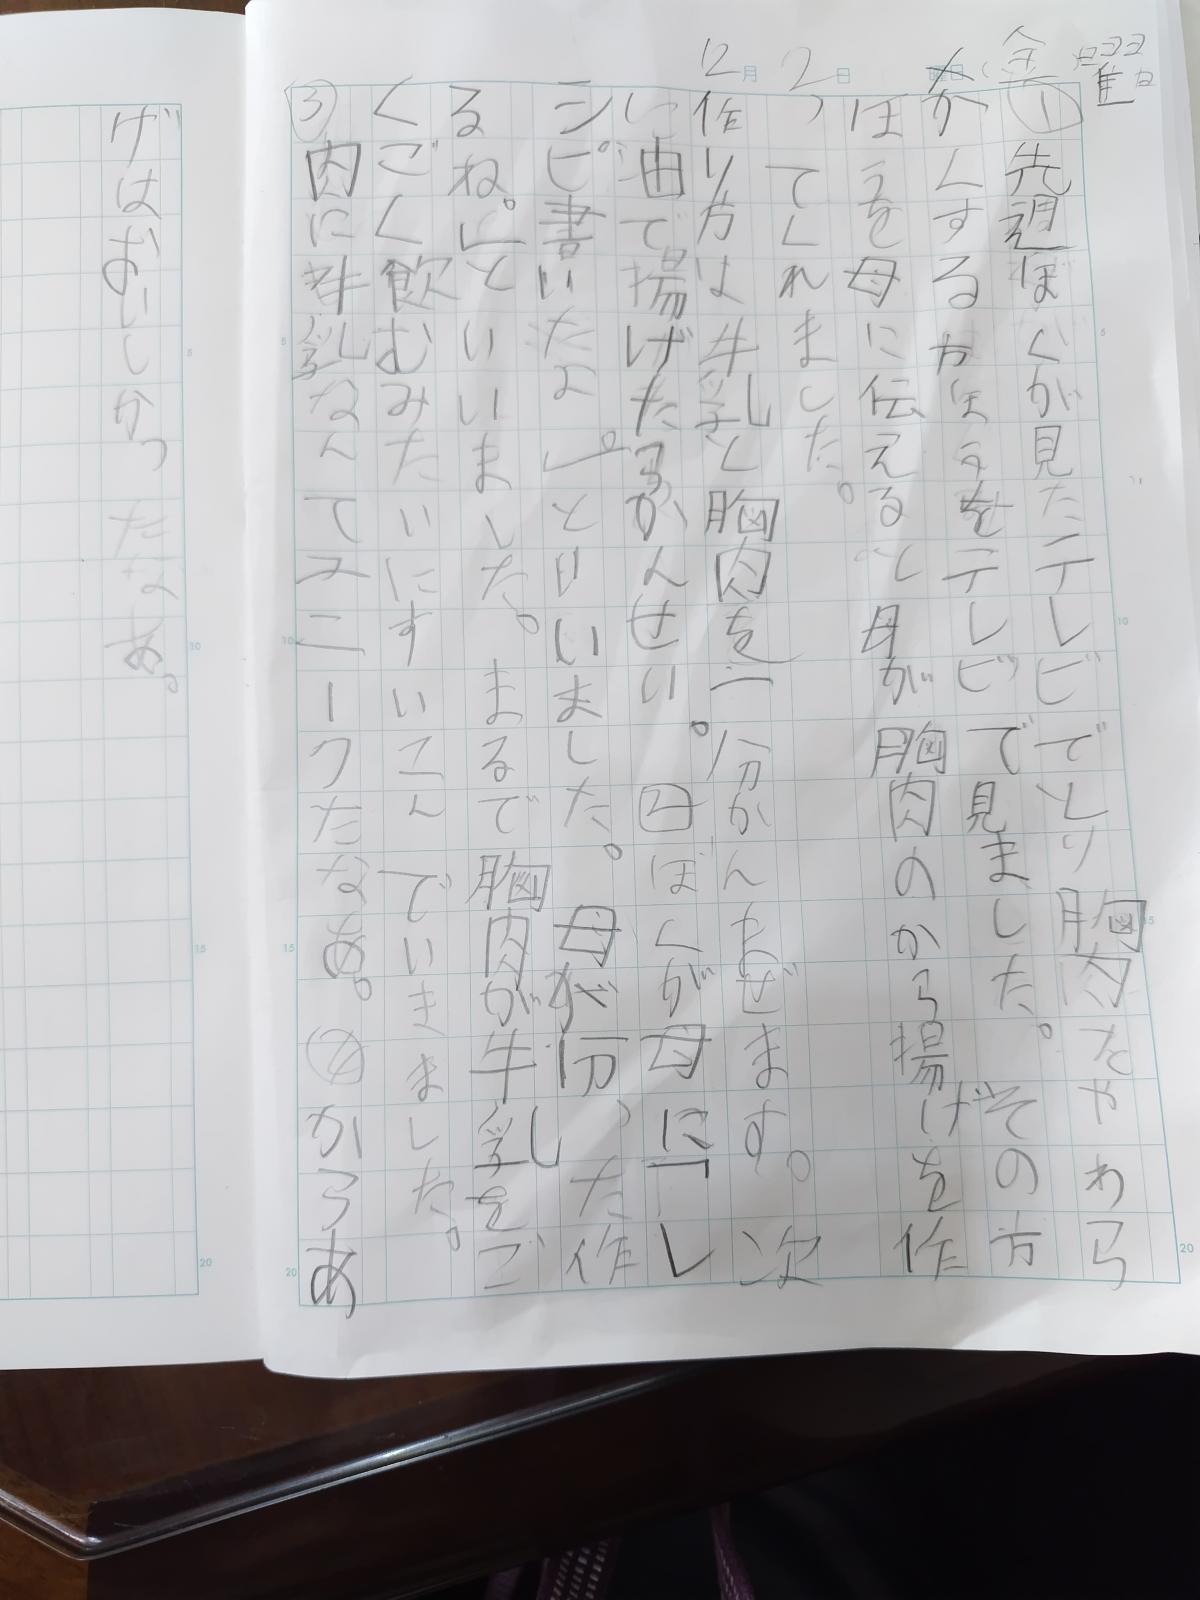 12月2日
①先週ぼくが見たテレビでとり胸肉をやわら
かくするかほうをテレビで見ました。その方
ほうを母に伝えると母が胸肉のから揚げを作
ってくれました。
作り方は牛乳と胸肉を一分かんまぜます。次
に油で揚げたらかんせい。②ぼくが母に「レ
シピ書いたよ。」といいました。母が「分、た作
るね。」といいました。まるで胸肉が牛乳をご
くごく飲むみたいにすいこんでいきました。
③肉に牛乳なんてユニークだなあ。④からあ
げはおいしかったなあ。